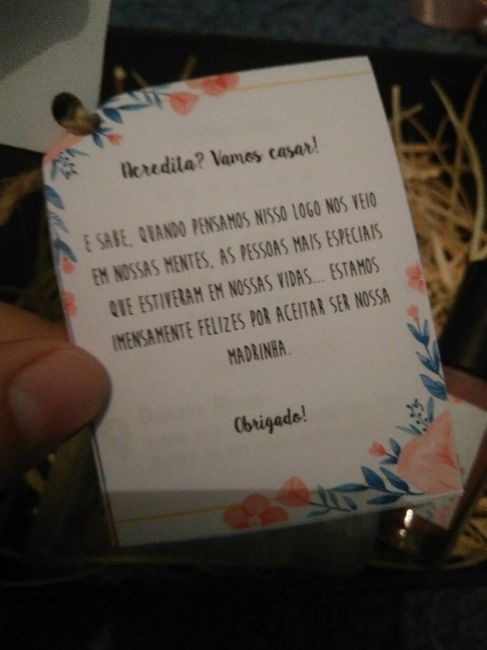 Acredita? Vamos casar!
E SABE, QUANDO PENSAMOS NISSO LOGO NOS VEIO
EM NOSSAS MENTES, AS PESSOAS MAIS ESPECIAIS
QUE ESTIVERAM EM NOSSAS VIDAS... ESTAMOS
IMENSAMENTE FELIZES POR ACEITAR SER NOSSA
MADRINHA.
Obrigado!